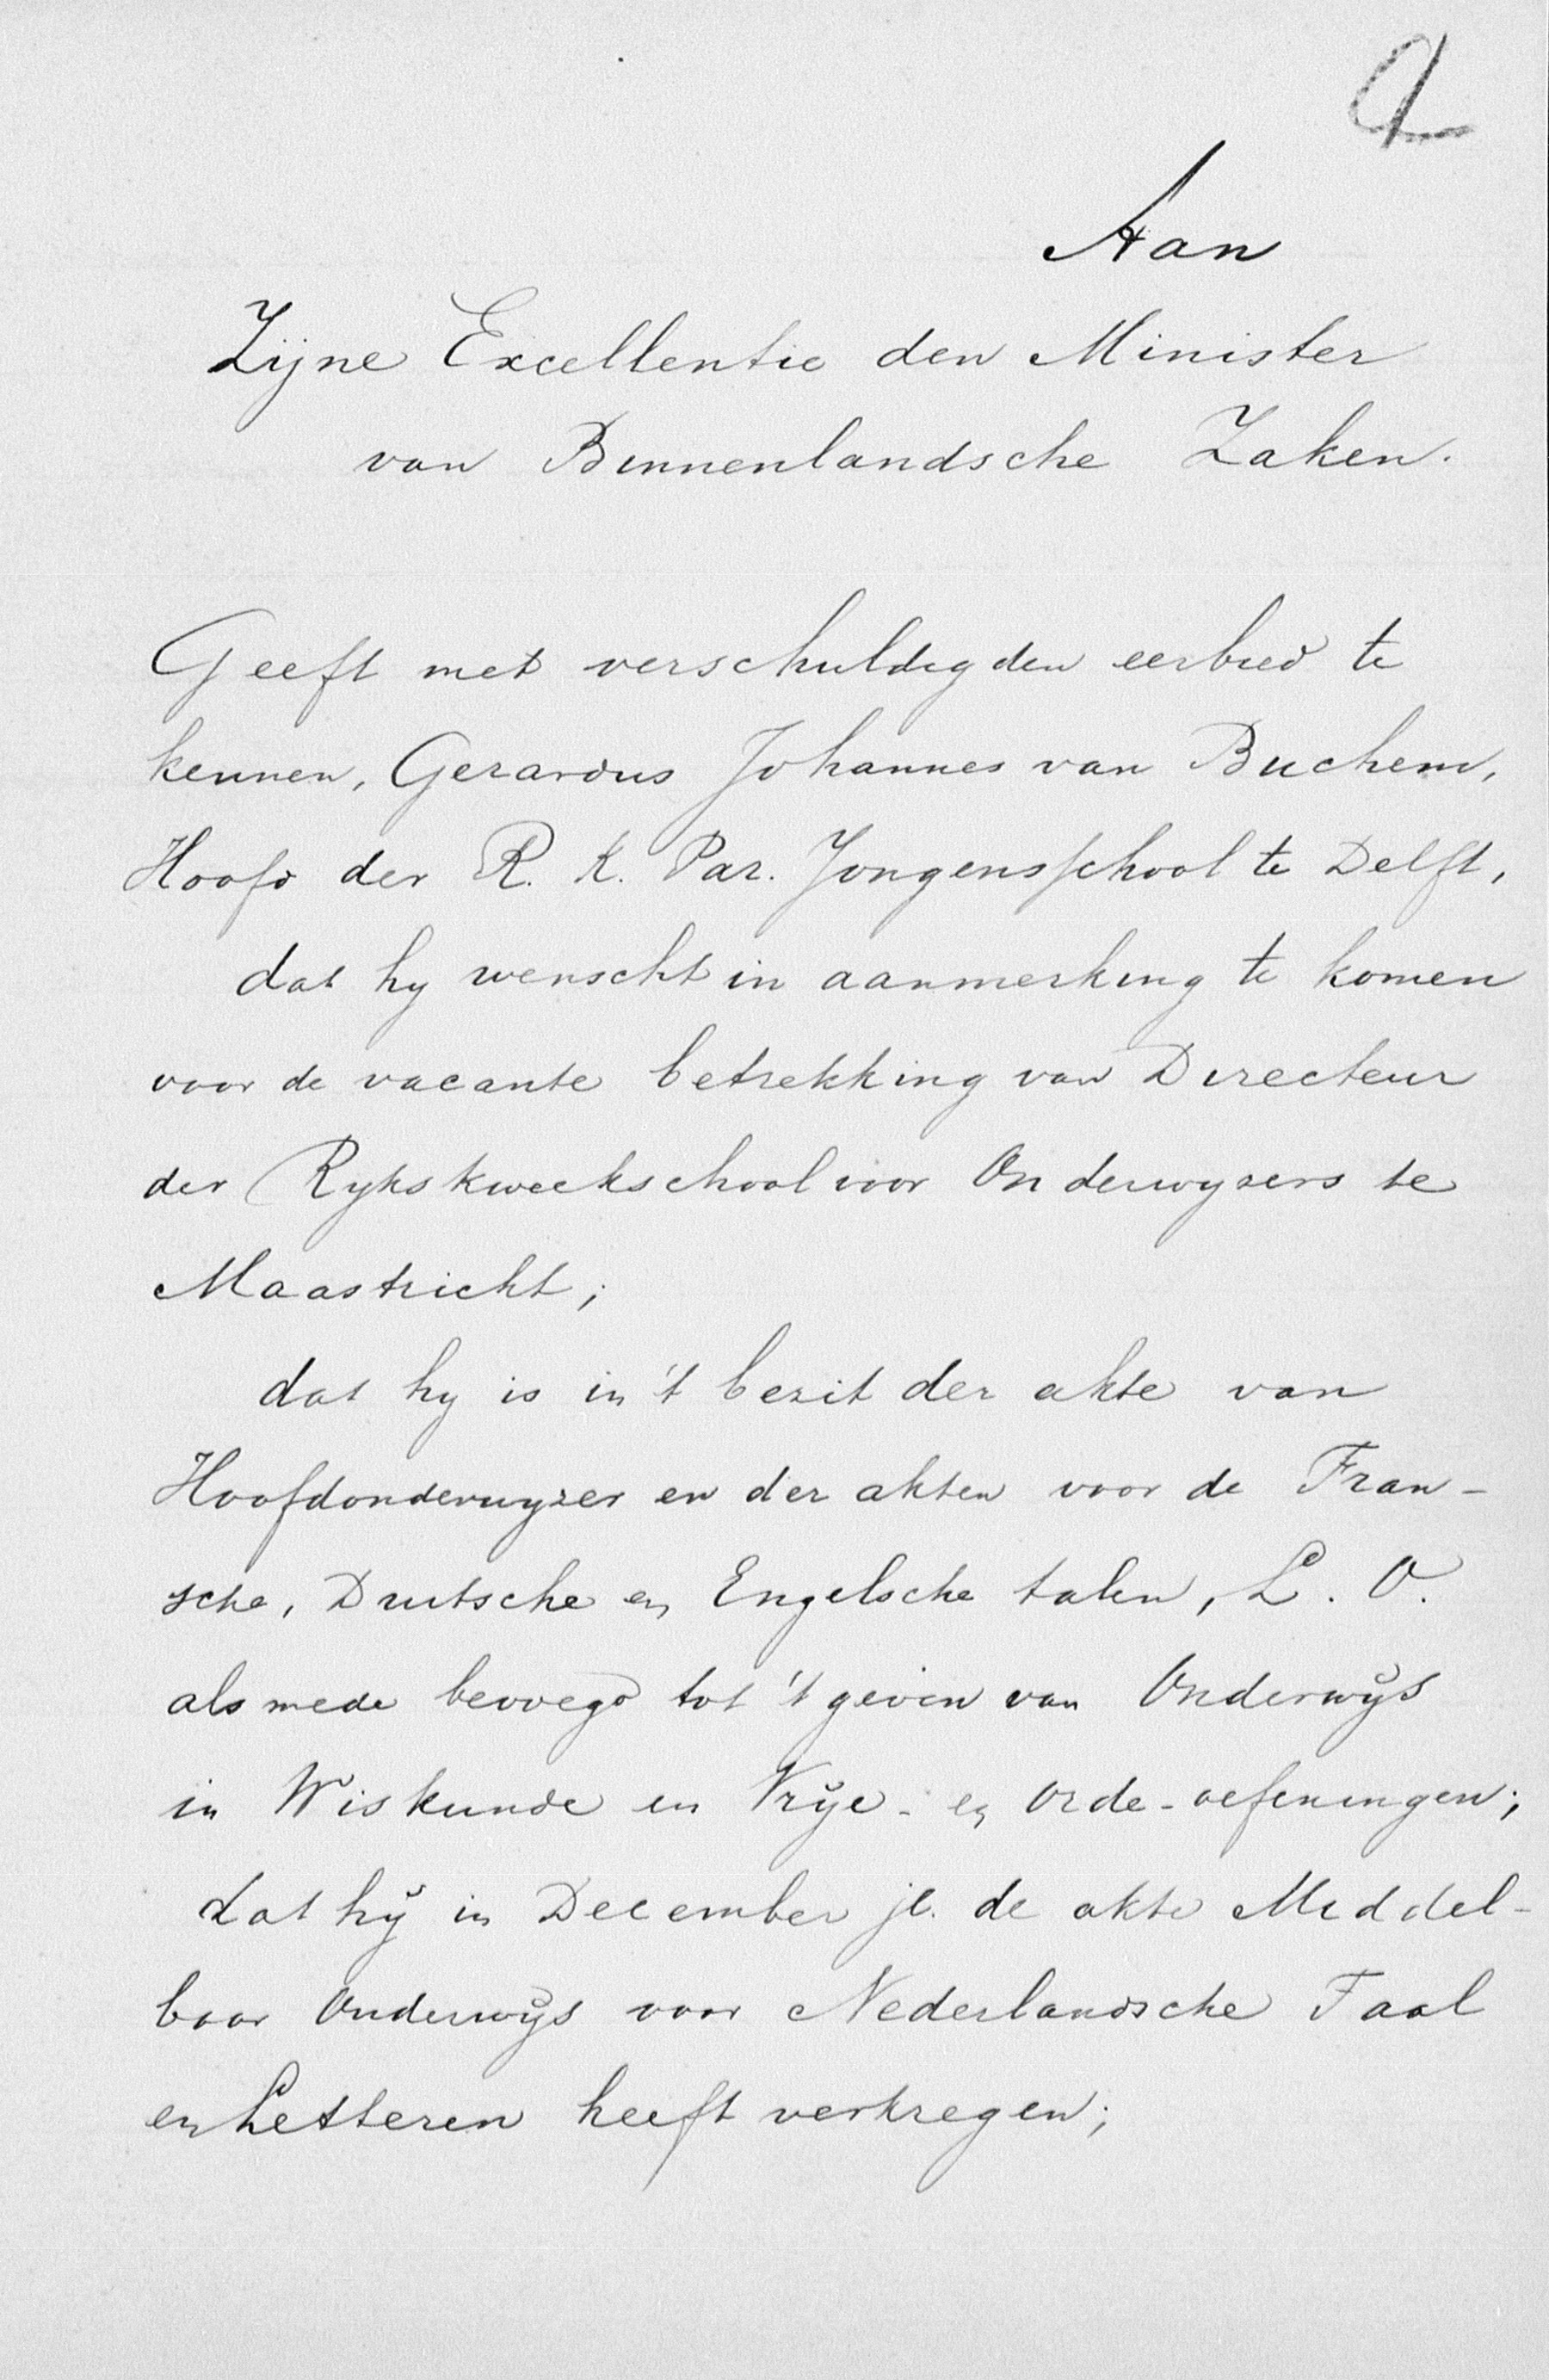 Aan
Zijne Excellentie den Minister
van Binnenlandsche Zaken.
Geeft met verschuldigden eerbied te
kennen, Gerardus Johannes van Buchem,
Hoofd der R. K. Par. Jongensschool te Delft,
dat hy wenscht in aanmerking te komen
voor de vacante betrekking van Directeur
der Rykskweekschool voor Onderwyzers te
Maastricht;
dat hy is in 't bezit der akte van
Hoofdonderwyzer en der akten voor de Fran-
sche, Duitsche en Engelsche talen, L. O.
alsmede bevoegd tot 't geven van Onderwijs
in Wiskunde en Vrije- en Orde-oefeningen;
dat hij in December jl. de akte Middel-
baar Onderwijs voor Nederlandsche Taal
en Letteren heeft verkregen;